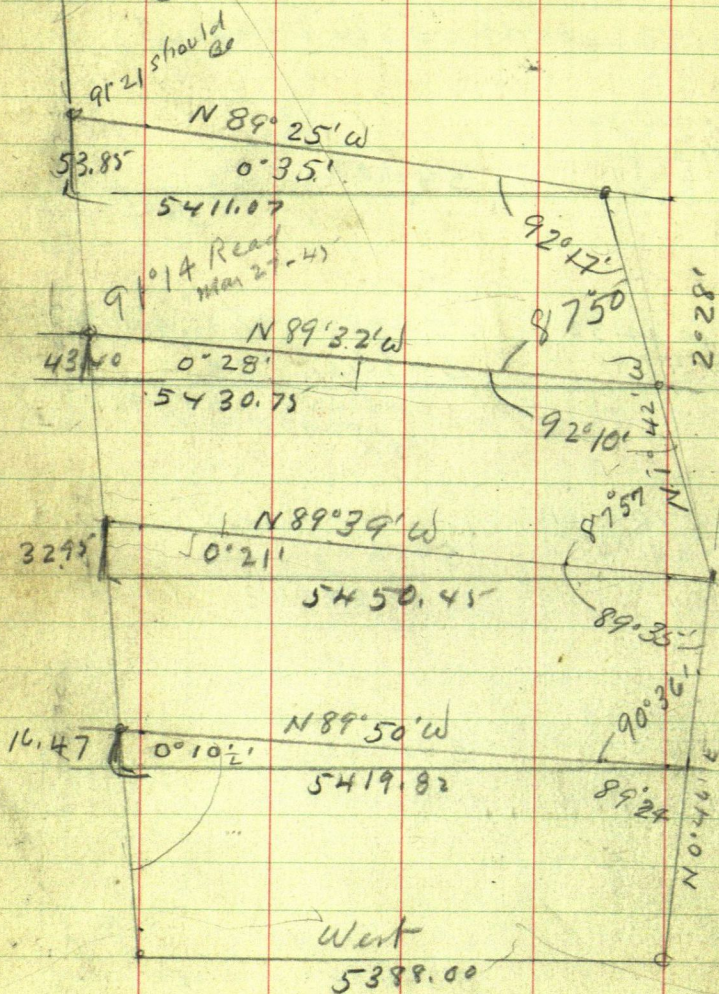 91°21 should be
N 89° 25' W
53.85
0° 35'
5411.07
92° 17'
91° 14 Read
Mar 27-45
87° 50'
2° 28'
N 89° 32' W
43.40
0° 28'
5430.75
92° 10'
N 1° 42' W
87° 57
N 89° 39' W
32.95
0° 21'
5450.45
89° 35'
90° 36'
N 89° 50' W
16.47
0° 10½'
5419.82
89° 24
N 0° 46' E
West
5388.00